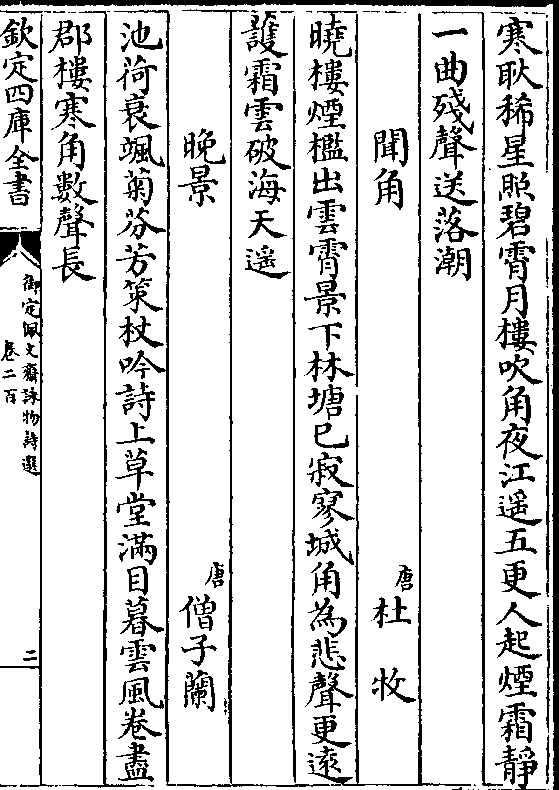 寒耿稀星照碧霄月樓吹角夜江遥五更人起煙霜靜
一曲殘聲送落潮
聞角
唐
杜牧
曉樓煙檻出雲霄景下林塘已寂寥城角為悲聲更遠
護霜雲破海天遥
晚景
唐
僧子蘭
池荷衰颯菊芬芳策杖吟詩上草堂滿目暮雲風卷盡
郡樓寒角數聲長
欽定四庫全書
御定佩文齋詠物詩選
卷二百
二